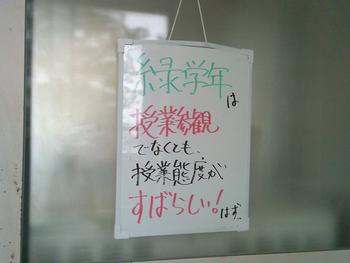 緑学年
は
授業参観
でなくても、
授業態度が
すばらしい!はず。